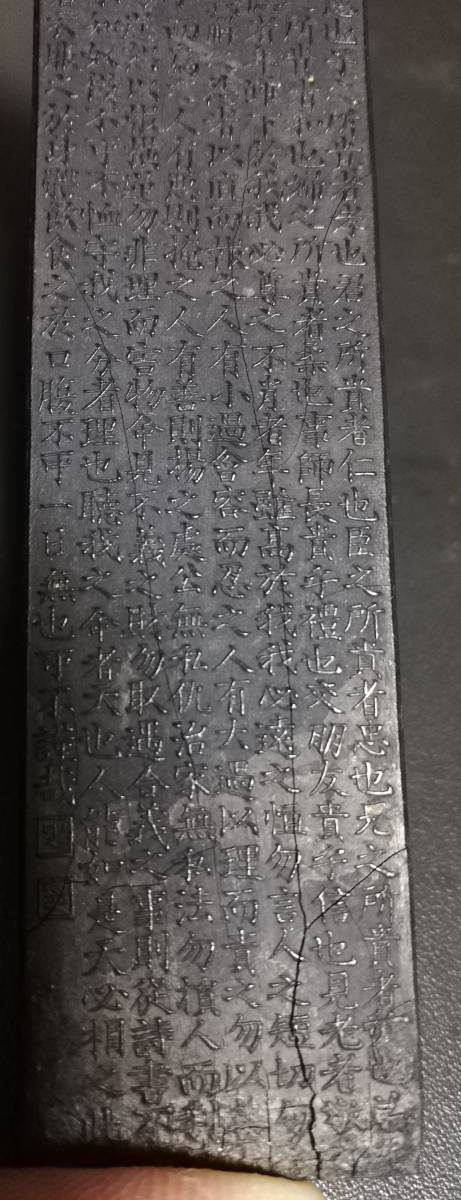 也子之所貴者孝也君之所貴者仁也臣之所貴者忠也兄之所貴者
所貴者和也婦之所貴者柔也事師長貴乎禮也交朋友貴乎信也見老者敬
者年雖下於我我必尊之不肖者年雖高於我我必遠之慎勿言人之短切勿
者以直而報之人有小過含容而忍之人有大過以理而責之勿以
而為之人有惡則掩之人有善則揚之處公無私仇治家無私法勿損人而利
勿非理而害物命見不義之財勿取遇合義之事則從詩書不
不可不恤守我之分者理也聽我之命者天也人能如是天必相之此
衣服之於身體飲食之於口腹不可一日無也可不謹哉